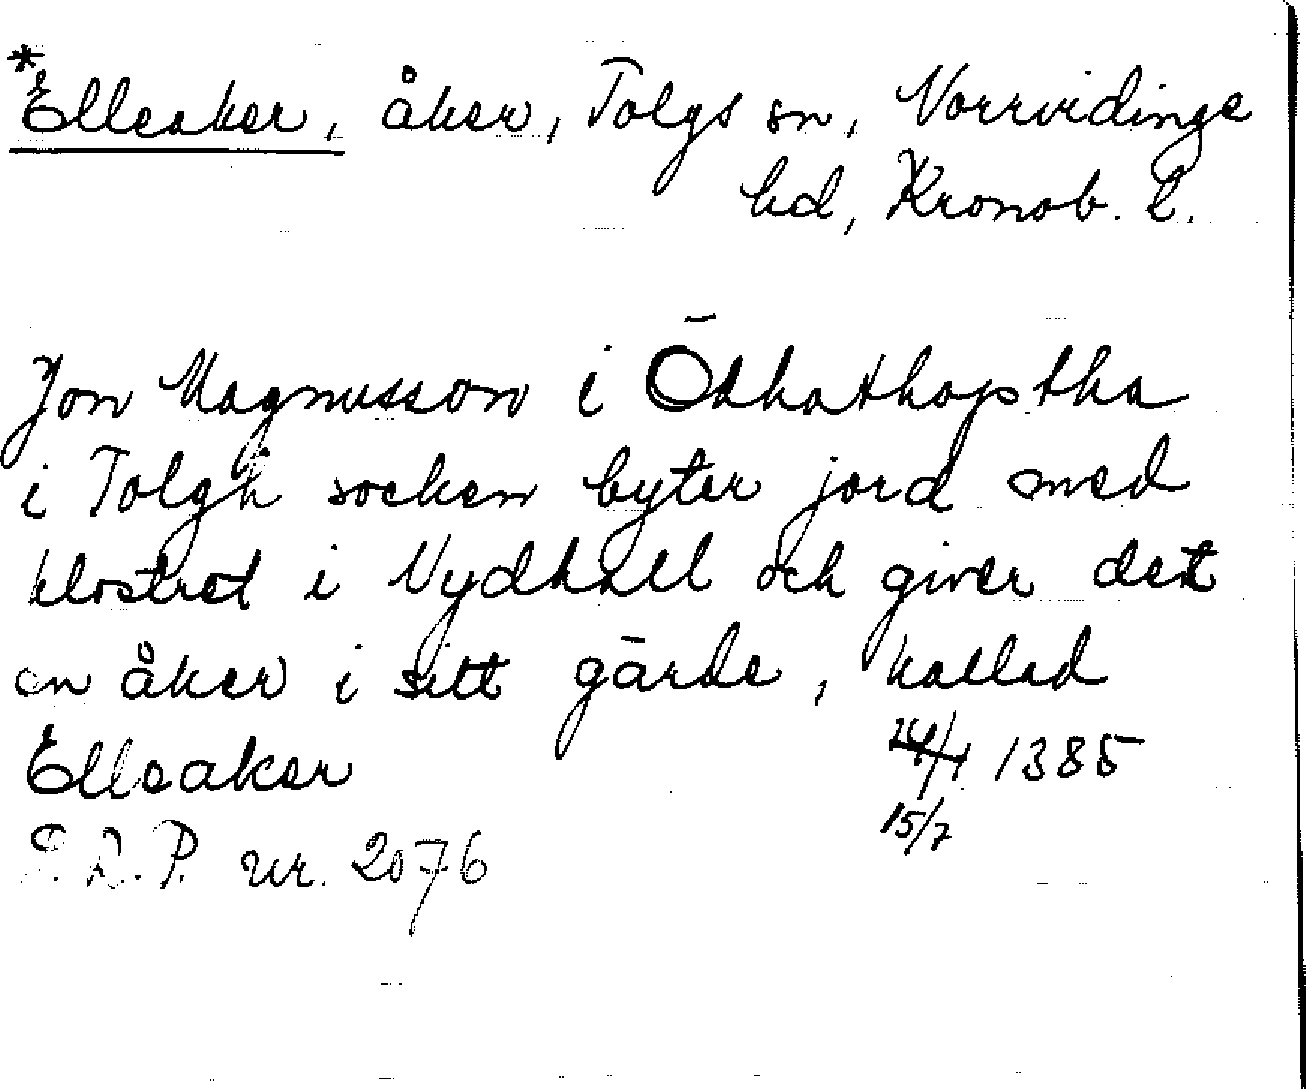 *Elleaker, åker, Tolgs sn, Norrvidinge
hd, Kronob. l.
Jon Magnusson i
i Tolgh socken byter jord med
klostret i Nydhall och giver det
en åker i sitt gärde, kallad
Elleaker 24/1 1385
15/7
P. R. P. nr. 2076